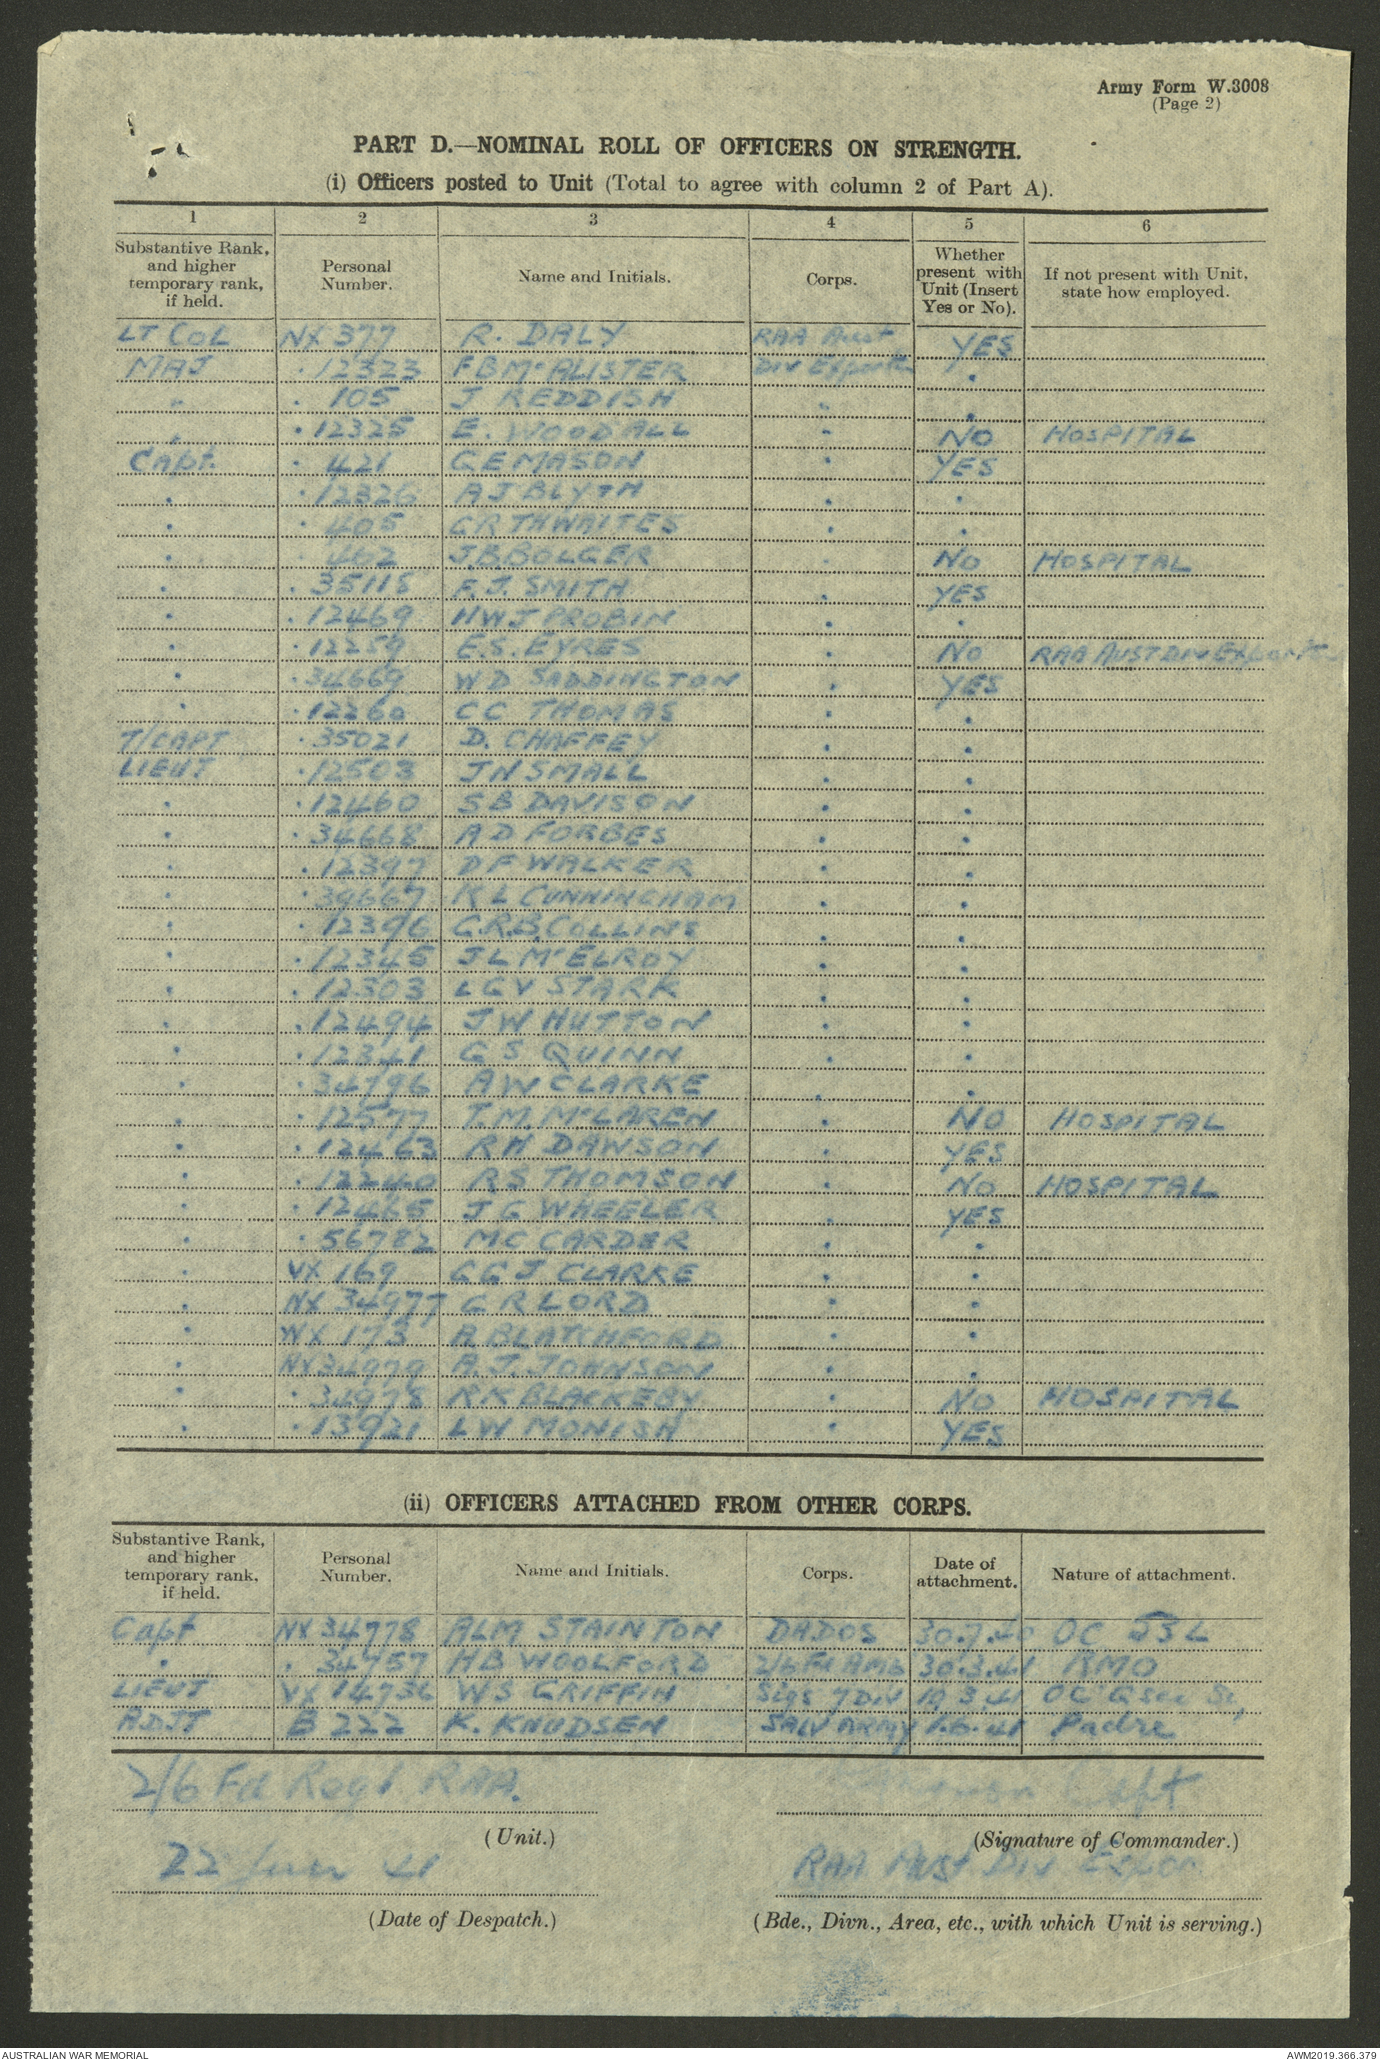 Army Form W.3008
(Page 2)
PART D.—NOMINAL ROLL OF OFFICERS ON STRENGTH.
(i) Officers posted to Unit (Total to agree with column 2 of Part A).
1 2 3 4 5 6
Substantive Rank, and higher temporary rank, if held. Personal Number. Name and Initials. Corps. Whether present with Unit (Insert Yes or No). If not present with Unit, state how employed.
LT COL NX 377 R. DALY RAA Aust YES
MAJ . 12323 F B McALISTER Div "
" . 105 J REDDISH " "
" . 12325 E. WOODALL " NO HOSPITAL
Capt. . 421 G E MASON " YES
" . 12326 A J BLYTH " "
" . 405 G R THWAITES " "
" . 462 J.B. BOLGER " NO HOSPITAL
" . 35118 F. J. SMITH " YES
" . 12469 H W J PROBIN " "
" . 12259 E.S. EYRES " NO RAA AUST DIV
" . 34669 W D SADDINGTON " YES
" . 12260 C C THOMAS " "
T/CAPT . 35021 D. CHAFFEY " "
LIEUT . 12503 J N SMALL " "
" . 12460 S B DAVISON " "
" . 34668 A D FORBES " "
" . 12397 D F WALKER " "
" . 34667 K L CUNNINGHAM " "
" . 12396 G.R.B. COLLINS " "
" . 12345 J L McELROY " "
" . 12303 L G V STARK " "
" . 12494 J W HUTTON " "
" . 12341 G S QUINN " "
" . 34796 A W CLARKE " "
" . 12577 T. M. McLAREN " NO HOSPITAL
" . 12463 R H DAWSON " YES
" . 12240 R S THOMSON " NO HOSPITAL
" . 12465 J G WHEELER " YES
" . 56782 M C CARDER " "
" VX 169 G G J CLARKE " "
" NX 34977 G R LORD " "
" WX 173 A BLATCHFORD " "
" NX 34979 A. J. JOHNSON " "
" . 34978 R K BLACKEBY " NO HOSPITAL
" . 13921 L W MONISH " YES
(ii) OFFICERS ATTACHED FROM OTHER CORPS.
Substantive Rank, and higher temporary rank, if held. Personal Number. Name and Initials. Corps. Date of attachment. Nature of attachment.
Capt NX 34778 ALM STAINTON DADOS 30.7.40 OC
" . 34757 H B WOOLFORD 2/6 Fd Amb 30.3.41 RMO
LIEUT VX 14736 W S GRIFFIN Sigs 7 Div 19 3.41 OC
ADJT B 222 K. KNUDSEN SALV ARMY 1.6.41 Padre
2/6 Fd Regt RAA.
(Unit.)
Capt
(Signature of Commander.)
22 Jun 41
(Date of Despatch.)
RAA Aust Div
(Bde., Divn., Area, etc., with which Unit is serving.)
AUSTRALIAN WAR MEMORIAL
AWM2019.366.379